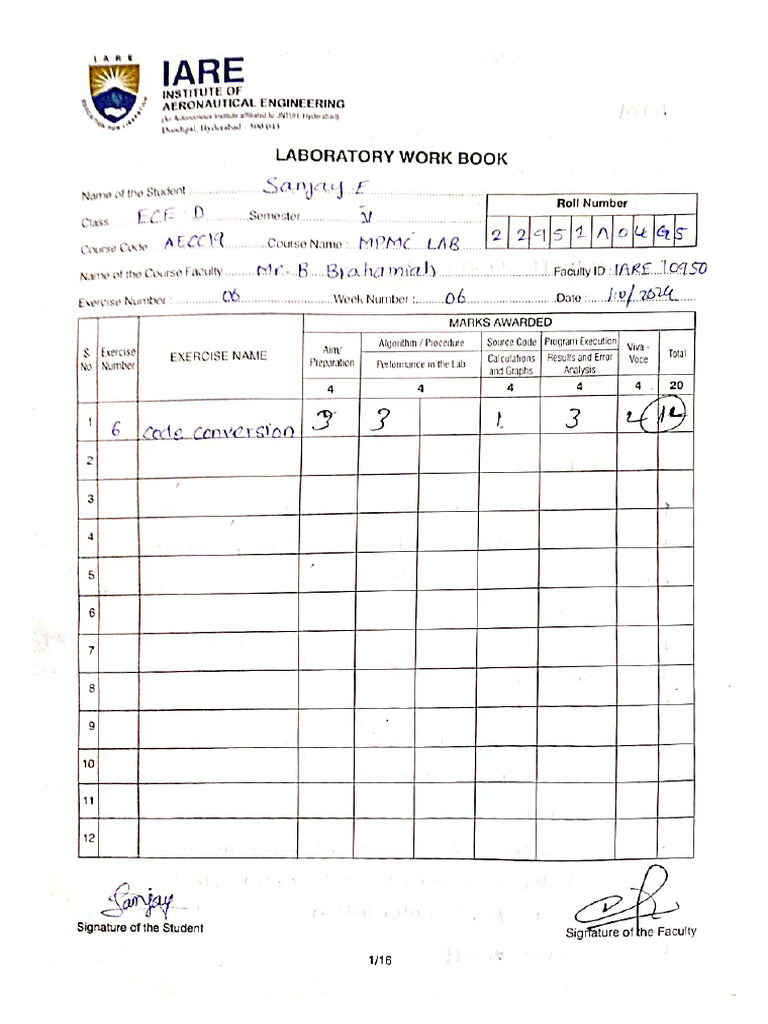 I A R E
IARE
INSTITUTE OF
AERONAUTICAL ENGINEERING
(An Autonomous Institute affiliated to JNTUH, Hyderabad)
Dundigal, Hyderabad - 500 043
EDUCATION FOR LIBERATION
LABORATORY WORK BOOK
Name of the Student Sanjay E
Class ECE - D Semester V
Roll Number
2 2 9 5 1 A 0 4 G 5
Course Code AECC19 Course Name : MPMC LAB
Name of the Course Faculty Mr. B Brahamiah Faculty ID : IARE 10950
Exercise Number : 06 Week Number : 06 Date : 1/10/2024
S. No. Exercise Number EXERCISE NAME MARKS AWARDED
Aim/ Preparation Algorithm / Procedure Source Code Program Execution Viva - Voce Total
Performance in the Lab Calculations and Graphs Results and Error Analysis
4 4 4 4 4 20
1 6 code conversion 3 3 1 3 2 12
2
3
4
5
6
7
8
9
10
11
12
Sanjay
Signature of the Student
Signature of the Faculty
1/16